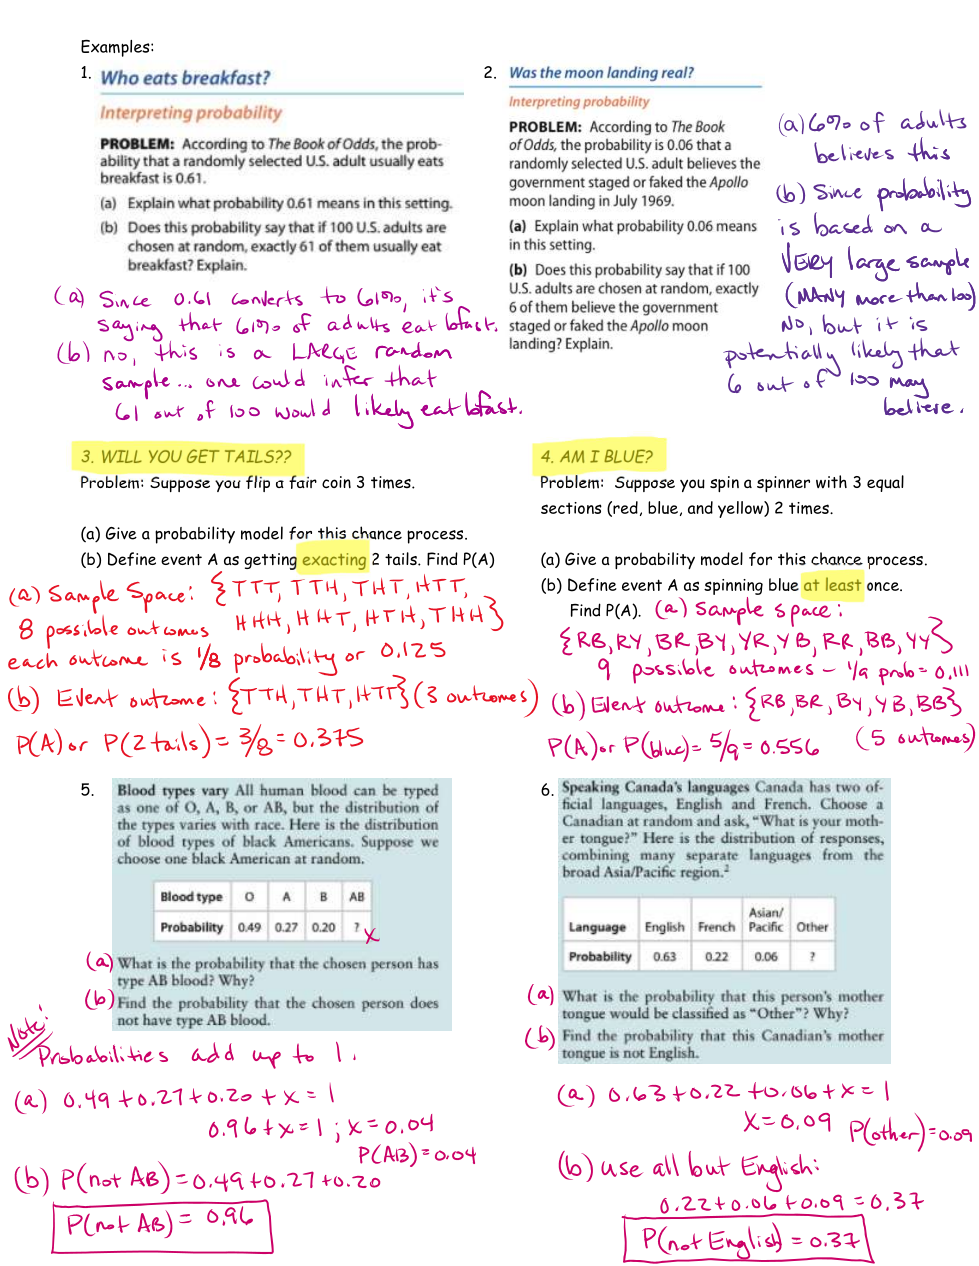 Examples:
1. Who eats breakfast?
Interpreting probability
PROBLEM: According to The Book of Odds, the prob-
ability that a randomly selected U.S. adult usually eats
breakfast is 0.61.
(a) Explain what probability 0.61 means in this setting.
(b) Does this probability say that if 100 U.S. adults are
chosen at random, exactly 61 of them usually eat
breakfast? Explain.
(a) Since 0.61 converts to 61%, it's
saying that 61% of adults eat bfast.
(b) no, this is a LARGE random
sample... one could infer that
61 out of 100 would likely eat bfast.
2. Was the moon landing real?
Interpreting probability
PROBLEM: According to The Book
of Odds, the probability is 0.06 that a
randomly selected U.S. adult believes the
government staged or faked the Apollo
moon landing in July 1969.
(a) Explain what probability 0.06 means
in this setting.
(b) Does this probability say that if 100
U.S. adults are chosen at random, exactly
6 of them believe the government
staged or faked the Apollo moon
landing? Explain.
(a) 6% of adults
believes this
(b) Since probability
is based on a
VERY large sample
(MANY more than 100)
No, but it is
potentially likely that
6 out of 100 may
believe.
3. WILL YOU GET TAILS??
Problem: Suppose you flip a fair coin 3 times.
(a) Give a probability model for this chance process.
(b) Define event A as getting exacting 2 tails. Find P(A)
(a) Sample Space: {TTT, TTH, THT, HTT,
8 possible outcomes HHH, HHT, HTH, THH}
each outcome is 1/8 probability or 0.125
(b) Event outcome: {TTH, THT, HTT} (3 outcomes)
P(A) or P(2 tails) = 3/8 = 0.375
4. AM I BLUE?
Problem: Suppose you spin a spinner with 3 equal
sections (red, blue, and yellow) 2 times.
(a) Give a probability model for this chance process.
(b) Define event A as spinning blue at least once.
Find P(A). (a) Sample space:
{RB, RY, BR, BY, YR, YB, RR, BB, YY}
9 possible outcomes - 1/9 prob = 0.111
(b) Event outcome: {RB, BR, BY, YB, BB}
P(A) or P(blue) = 5/9 = 0.556 (5 outcomes)
5. Blood types vary All human blood can be typed
as one of O, A, B, or AB, but the distribution of
the types varies with race. Here is the distribution
of blood types of black Americans. Suppose we
choose one black American at random.
Blood type O A B AB
Probability 0.49 0.27 0.20 ? x
(a) What is the probability that the chosen person has
type AB blood? Why?
(b) Find the probability that the chosen person does
not have type AB blood.
Note:
Probabilities add up to 1.
(a) 0.49 + 0.27 + 0.20 + x = 1
0.96 + x = 1 ; x = 0.04
P(AB) = 0.04
(b) P(not AB) = 0.49 + 0.27 + 0.20
P(not AB) = 0.96
6. Speaking Canada's languages Canada has two of-
ficial languages, English and French. Choose a
Canadian at random and ask, "What is your moth-
er tongue?" Here is the distribution of responses,
combining many separate languages from the
broad Asia/Pacific region.²
Language English French Asian/
Pacific Other
Probability 0.63 0.22 0.06 ?
(a) What is the probability that this person's mother
tongue would be classified as "Other"? Why?
(b) Find the probability that this Canadian's mother
tongue is not English.
(a) 0.63 + 0.22 + 0.06 + x = 1
x = 0.09 P(other) = 0.09
(b) use all but English:
0.22 + 0.06 + 0.09 = 0.37
P(not English) = 0.37